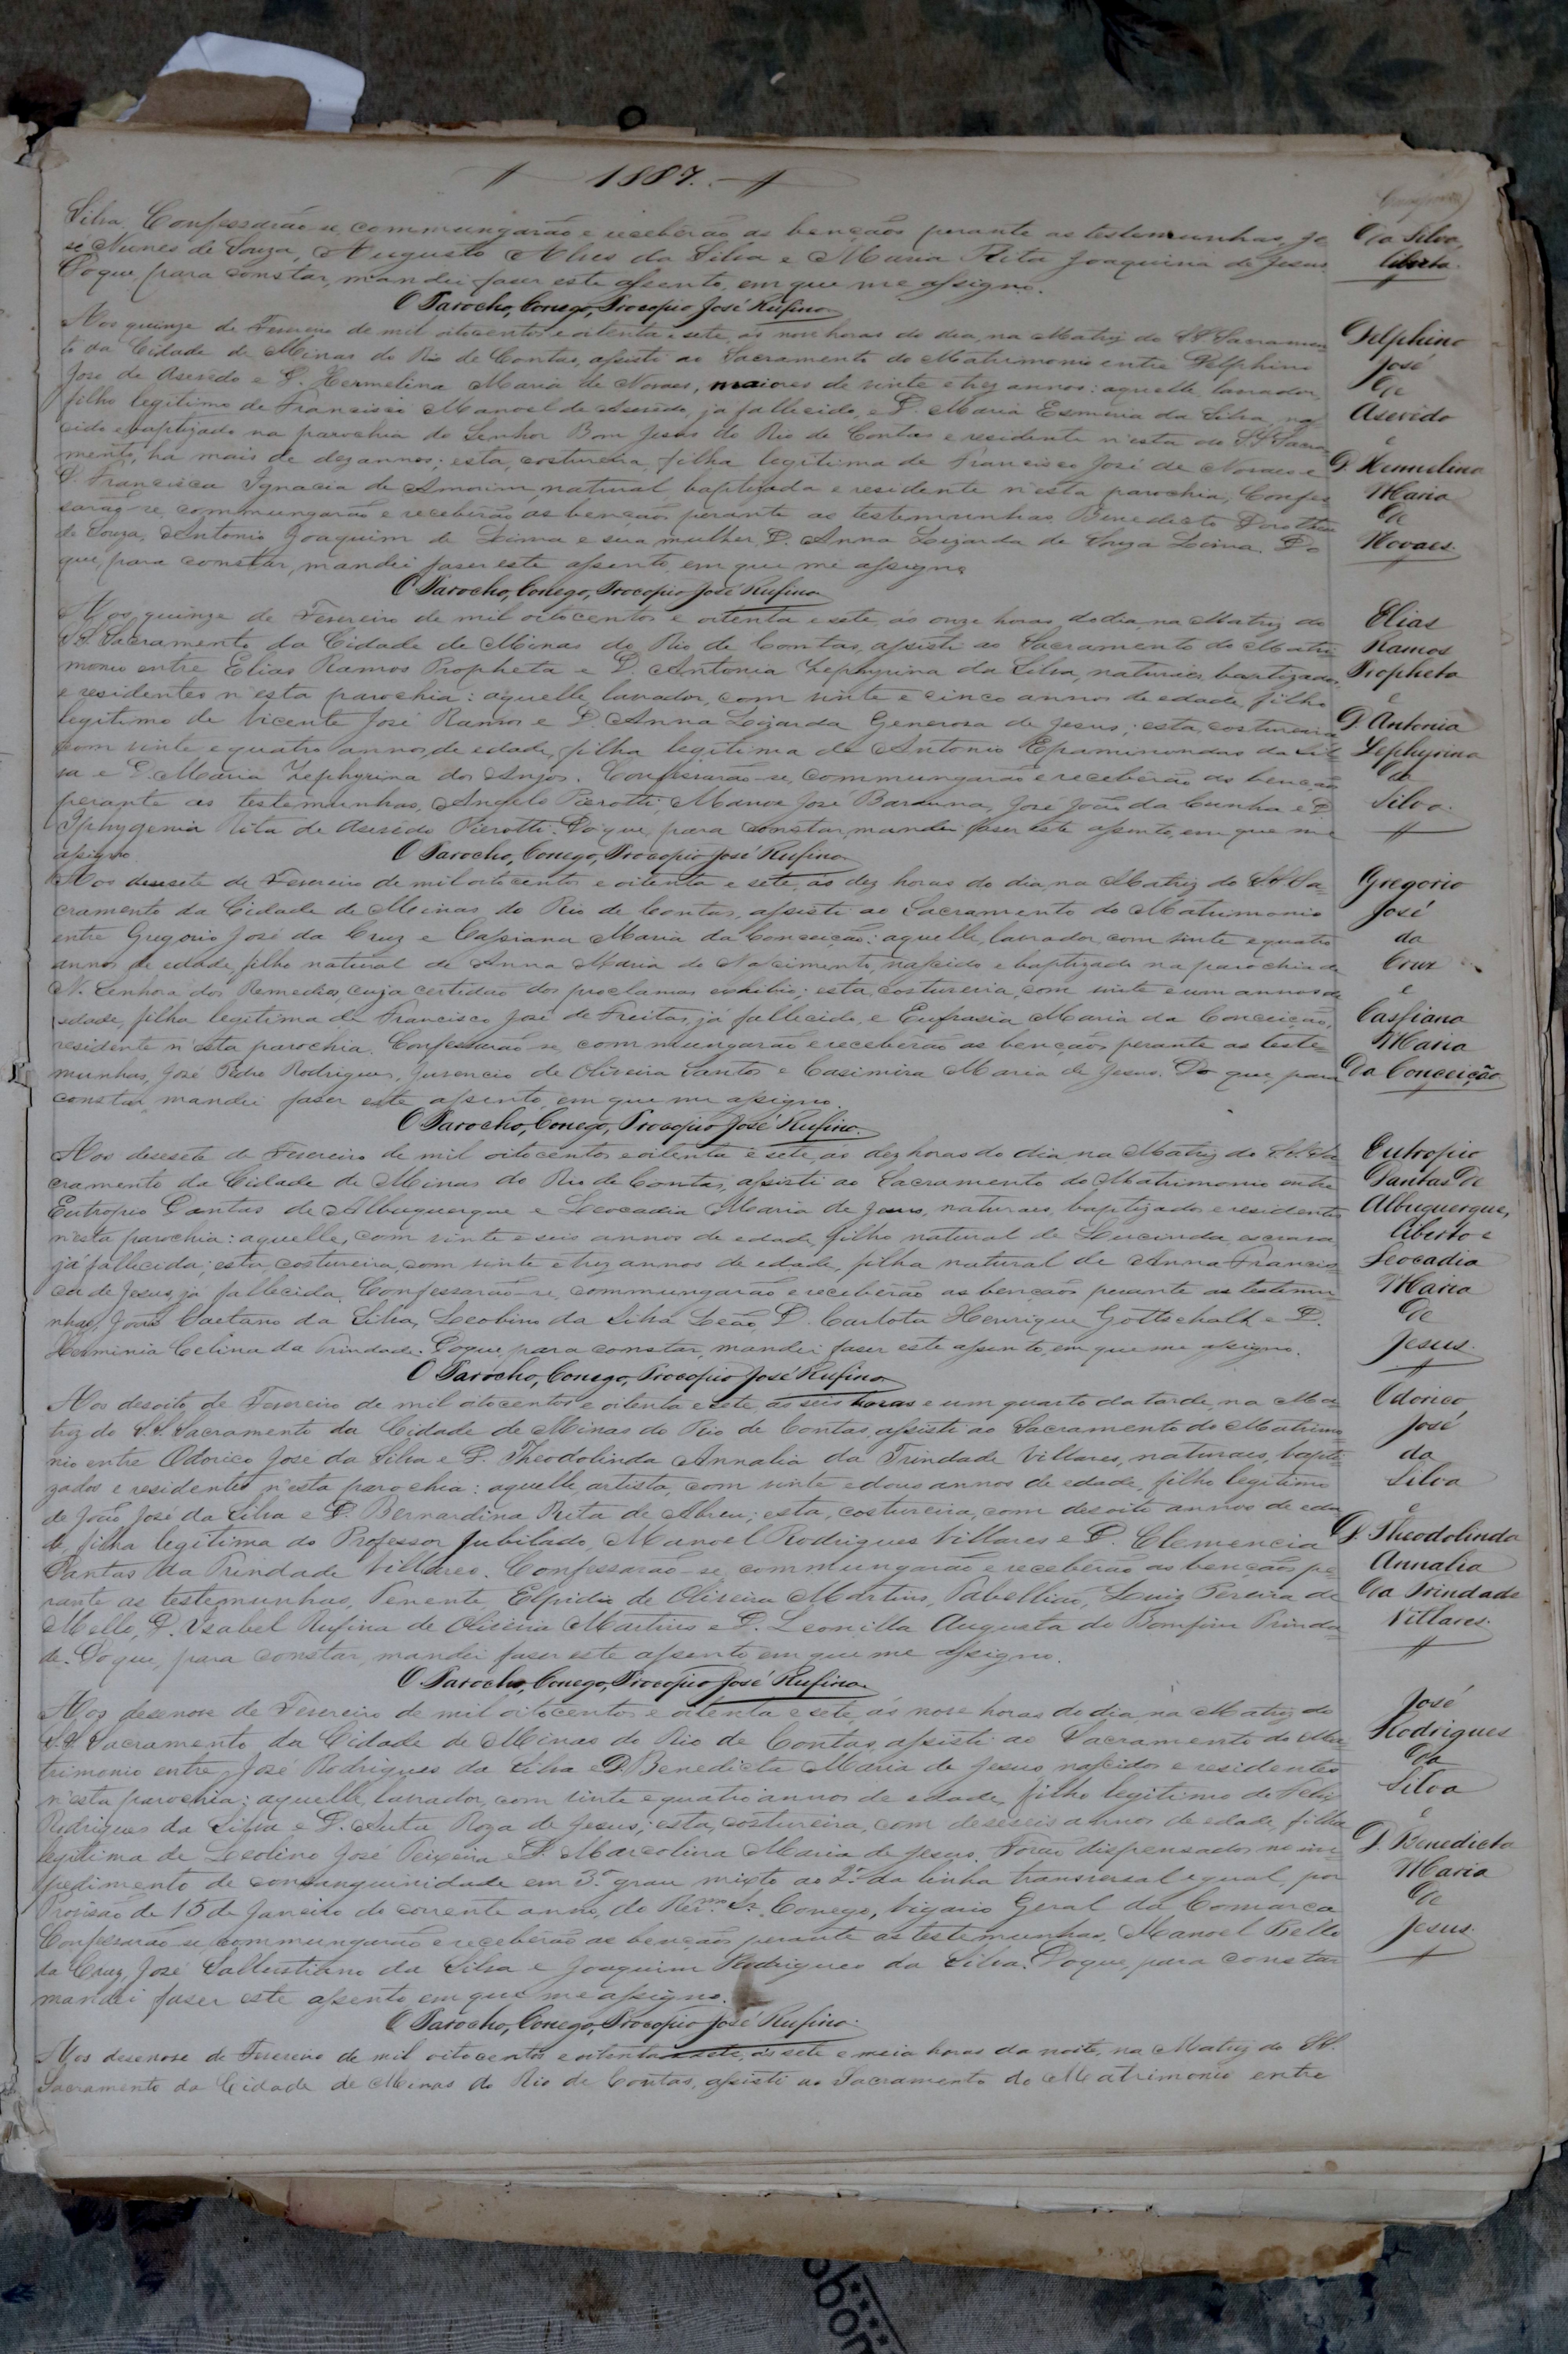 1887.
Silva. Confessarão-se, commungarão e receberão as bençãos perante as testemunhas, Jo
sé Nunes de Souza, Augusto Alves da Silva e Maria Rita Joaquina de Jesus.
Do que, para constar, mandei faser este assento, em que me assigno.
O Parocho, Conego, Procopio José Rufino.
Da Silva,
liberta.
Aos quinze de Fevereiro de mil oitocentos e oitenta e sete, ás nove horas do dia, na Matriz do SS. Sacramen
to da Cidade de Minas do Rio de Contas, assisti ao Sacramento do Matrimonio entre Delphino
José de Asevêdo e D. Hermelina Maria de Novaes, maiores de vinte e trez annos: aquelle, lavrador,
filho legitimo de Francisco Manoel de Asevêdo, já fallecido, e D. Maria Esmeria da Silva, nas
cido e baptizado na parochia do Senhor Bom Jesus do Rio de Contas e residente n'esta do SS. Sacra
mento, ha mais de dez annos; esta, costureira, filha legitima de Francisco José de Novaes e
D. Francisca Ignacia de Amorim, natural, baptizada e residente n'esta parochia. Confes
sarão-se, commungarão e receberão as bençãos perante as testemunhas, Benedicto Dorothea
de Souza, Antonio Joaquim de Lima e sua mulher, D. Anna Lizarda de Souza Lima. Do
que, para constar, mandei faser este assento, em que me assigno.
O Parocho, Conego, Procopio José Rufino.
Delphino
José
De
Asevêdo
e
D. Hermelina
Maria
De
Novaes.
Aos quinze de Fevereiro de mil oitocentos e oitenta e sete, ás onze horas do dia, na Matriz do
SS. Sacramento da Cidade de Minas do Rio de Contas, assisti ao Sacramento do Matri
monio entre Elias Ramos Propheta e D. Antonia Zephyrina da Silva, naturaes, baptizados
e residentes n'esta parochia: aquelle, lavrador, com vinte e cinco annos de edade, filho
legitimo de Vicente José Ramos e D. Anna Lizarda Generosa de Jesus; esta, costureira,
com vinte e quatro annos de edade, filha legitima de Antonio Epaminondas da Sil
va e D. Maria Zephyrina dos Anjos. Confessarão-se, commungarão e receberão as bençãos
perante as testemunhas, Angelo Pierotti, Manoel José Barauna, José João da Cunha e D.
Iphygenia Rita de Asevêdo Pierotti. Do que, para constar, mandei faser este assento, em que me
assigno.
O Parocho, Conego, Procopio José Rufino.
Elias
Ramos
Propheta
e
D. Antonia
Zephyrina
Da
Silva.
Aos desesete de Fevereiro de mil oitocentos e oitenta e sete, ás dez horas do dia, na Matriz do SS. Sa
cramento da Cidade de Minas do Rio de Contas, assisti ao Sacramento do Matrimonio
entre Gregorio José da Cruz e Cassiana Maria da Conceição: aquelle, lavrador, com vinte e quatro
annos de edade, filho natural de Anna Maria do Nascimento, nascido e baptizado na parochia de
N. Senhora dos Remedios, cuja certidão dos proclamas exhibio; esta, costureira, com vinte e um annos de
edade, filha legitima de Francisco José de Freitas, já fallecido, e Eufrasia Maria da Conceição,
residente n'esta parochia. Confessarão-se, commungarão e receberão as bençãos perante as teste=
munhas, José Pedro Rodrigues, Juvencio de Oliveira Santos e Casimira Maria de Jesus. Do que, para
constar, mandei faser este assento, em que me assigno.
O Parocho, Conego, Procopio José Rufino.
Gregorio
José
da
Cruz
e
Cassiana
Maria
Da Conceição
Aos desesete de Fevereiro de mil oitocentos e oitenta e sete, ás dez horas do dia, na Matriz do SS. Sa
cramento da Cidade de Minas do Rio de Contas, assisti ao Sacramento do Matrimonio entre
Eutropio Dantas de Albuquerque e Leocadia Maria de Jesus, naturaes, baptizados e residentes
n'esta parochia: aquelle, com vinte e seis annos de edade, filho natural de Lucinda, escrava,
já fallecida; esta, costureira, com vinte e trez annos de edade, filha natural de Anna Francis
ca de Jesus, já fallecida. Confessarão-se, commungarão e receberão as bençãos perante as testemu
nhas, João Caetano da Silva, Leobino da Silva Leão, D. Carlota Henrique Gottschalk e D.
Herminia Celina da Trindade. Do que, para constar, mandei faser este assento, em que me assigno.
O Parocho, Conego, Procopio José Rufino.
Eutropio
Dantas De
Albuquerque,
liberto e
Leocadia
Maria
De
Jesus.
Aos desoito de Fevereiro de mil oitocentos e oitenta e sete, ás seis horas e um quarto da tarde, na Ma
triz do SS. Sacramento da Cidade de Minas do Rio de Contas, assisti ao Sacramento do Matrimo
nio entre Odorico José da Silva e D. Theodolinda Annalia da Trindade Villares, naturaes, bapti
zados e residentes n'esta parochia: aquelle, artista, com vinte e dous annos de edade, filho legitimo
de João José da Silva e D. Bernardina Rita de Abreu; esta, costureira, com desoito annos de eda
de, filha legitima do Professor Jubilado, Manoel Rodrigues Villares e D. Clemencia
Dantas da Trindade Villares. Confessarão-se, commungarão e receberão as bençãos pe
rante as testemunhas, Tenente, Elpidio de Oliveira Martins, Tabellião, Luiz Pereira de
Mello, D. Ysabel Rufina de Oliveira Martins e D. Leonilla Augusta do Bomfim Trinda
de. Do que, para constar, mandei faser este assento, em que me assigno.
O Parocho, Conego, Procopio José Rufino.
Odorico
José
da
Silva
e
D. Theodolinda
Annalia
Da Trindade
Villares.
Aos desenove de Fevereiro de mil oitocentos e oitenta e sete, ás nove horas do dia, na Matriz do
SS. Sacramento da Cidade de Minas do Rio de Contas, assisti ao Sacramento do Ma
trimonio entre José Rodrigues da Silva e D. Benedicta Maria de Jesus, nascidos e residentes
n'esta parochia; aquelle, lavrador, com vinte e quatro annos de edade, filho legitimo de Felix
Rodrigues da Silva e D. Auta Roza de Jesus; esta, costureira, com deseseis annos de edade, filha
legitima de Leolino José Teixeira e D. Marcolina Maria de Jesus. Forão dispensados no im
pedimento de consanguinidade em 3º grau mixto ao 2º da linha transversal egual, por
Provisão de 15 de Janeiro do corrente anno, do Revmo Sr. Conego, Vigario Geral da Comarca.
Confessarão-se, commungarão e receberão as bençãos perante as testemunhas, Manoel Bello
da Cruz, José Sallustiano da Silva e Joaquim Rodrigues da Silva. Do que, para constar
mandei faser este assento em que me assigno.
O Parocho, Conego, Procopio José Rufino.
José
Rodrigues
Da
Silva
e
D. Benedicta
Maria
De
Jesus.
Aos desenove de Fevereiro de mil oitocentos e oitenta e sete, ás sete e meia horas da noite, na Matriz do SS.
Sacramento da Cidade de Minas do Rio de Contas, assisti ao Sacramento do Matrimonio entre